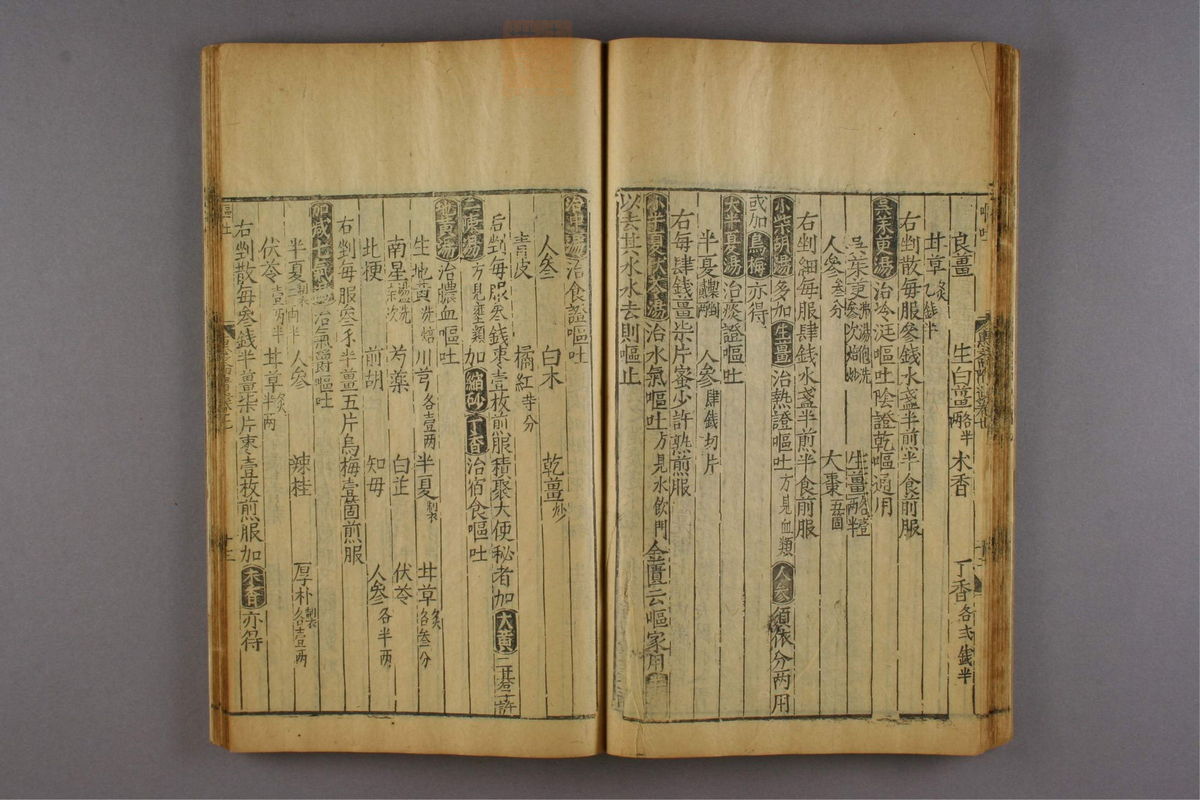 良薑 生白薑各半兩 木香 丁香各弍錢半
甘草炙乙錢半
右剉散每服叄錢水盞半煎半食前服
吳茱萸湯治冷涎嘔吐陰證乾嘔通用
吳茱萸沸湯泡洗叄次焙炒 生薑
人參叄分 大棗五箇
右剉細每服肆錢水盞半煎半食前服
小柴胡湯多加生薑治熱證嘔吐方見血類人參須依分兩用
或加烏梅亦得
大半夏湯治痰證嘔吐
半夏 人參肆錢切片
右每肆錢薑柒片蜜少許熟煎服
小半夏茯苓湯治水氣嘔吐方見水飲門金匱云嘔家用半夏
以去其水水去則嘔止
治中湯治食證嘔吐
人參 白朮 乾薑炒
青皮 橘紅等分
右剉每服叄錢棗壹枚煎服積聚大便秘者加大黃二棊子許
二陳湯方見瘧類加縮砂丁香治宿食嘔吐
地黃湯治膿血嘔吐
生地黃洗焙 川芎各壹兩 半夏製 甘草炙各叄分
南星湯洗 芍藥 白芷 茯苓
北梗 前胡 知母 人參各半兩
右剉每服叄錢半薑五片烏梅壹箇煎服
加減七氣湯治氣鬱嘔吐
半夏製二兩半 人參 辣桂 厚朴製各壹兩
茯苓壹兩半 甘草炙半兩
右剉散每叄錢半薑柒片棗壹枚煎服加木香亦得
嘔吐